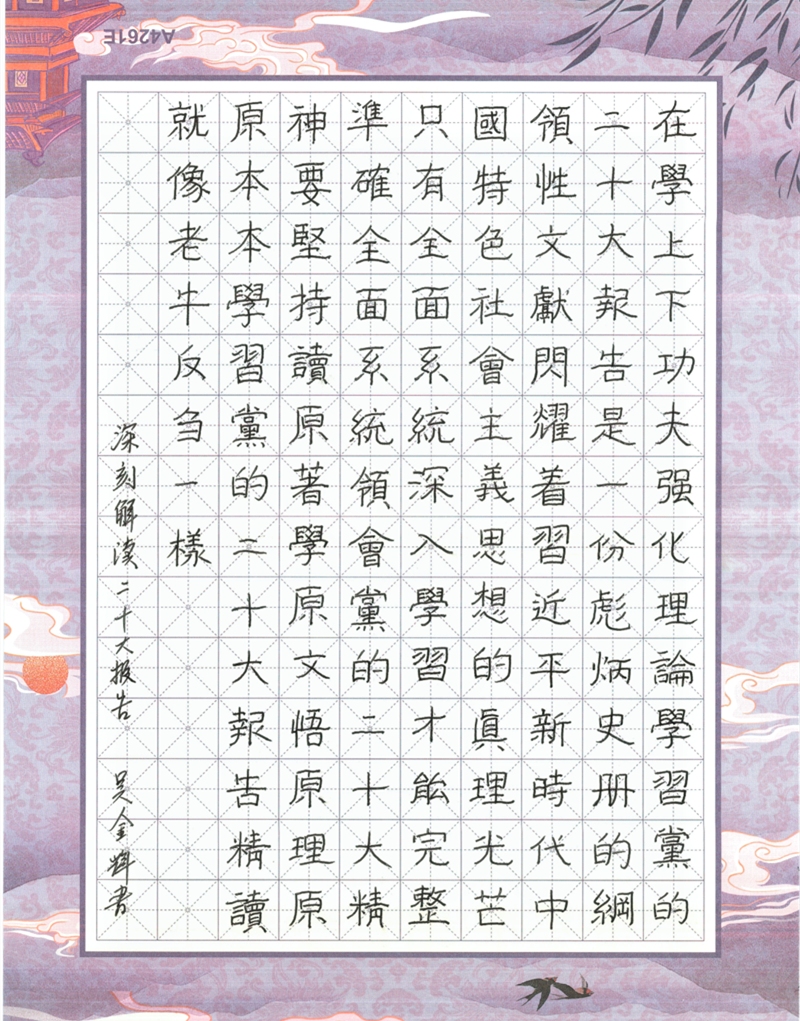 在學上下功夫强化理論學習黨的
二十大報告是一份彪炳史册的綱
領性文獻閃耀着習近平新時代中
國特色社會主義思想的真理光芒
只有全面系統深入學習才能完整
準確全面系統領會黨的二十大精
神要堅持讀原著學原文悟原理原
原本本學習黨的二十大報告精讀
就像老牛反刍一樣
深刻解读二十大报告 吴金辉书
A4261E